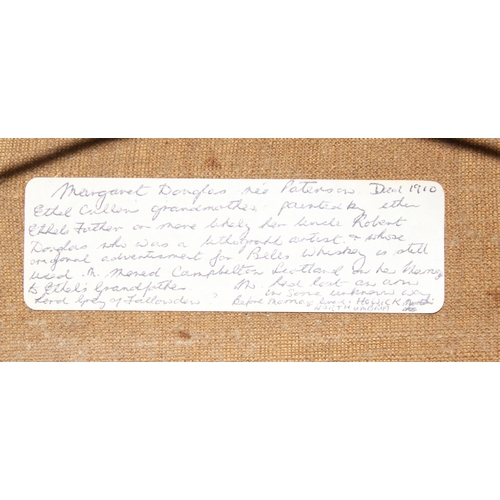 Margaret Douglas née Paterson Died 1910
Ethel Cullens grandmother. painted by either
Ethels Father or more likely her Uncle Robert
Douglas who was a lithograph artist & whose
original advertisment for Bells Whiskey is still
used. M. moved Campbelton Scotland on her Marriage
to Ethel's Grandfather. Ms. had lost an arm
in some unknown way
Lord Grey of Fallowden? Before Marriage lived: HOWICK
NORTHUMBRIA